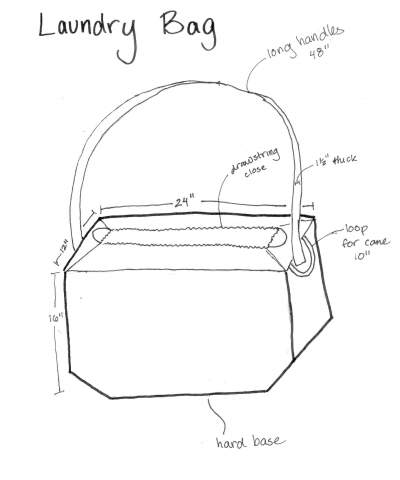 Laundry Bag
long handles
48"
drawstring
close
1½" thick
24"
12"
loop
for cane
10"
16"
hard base